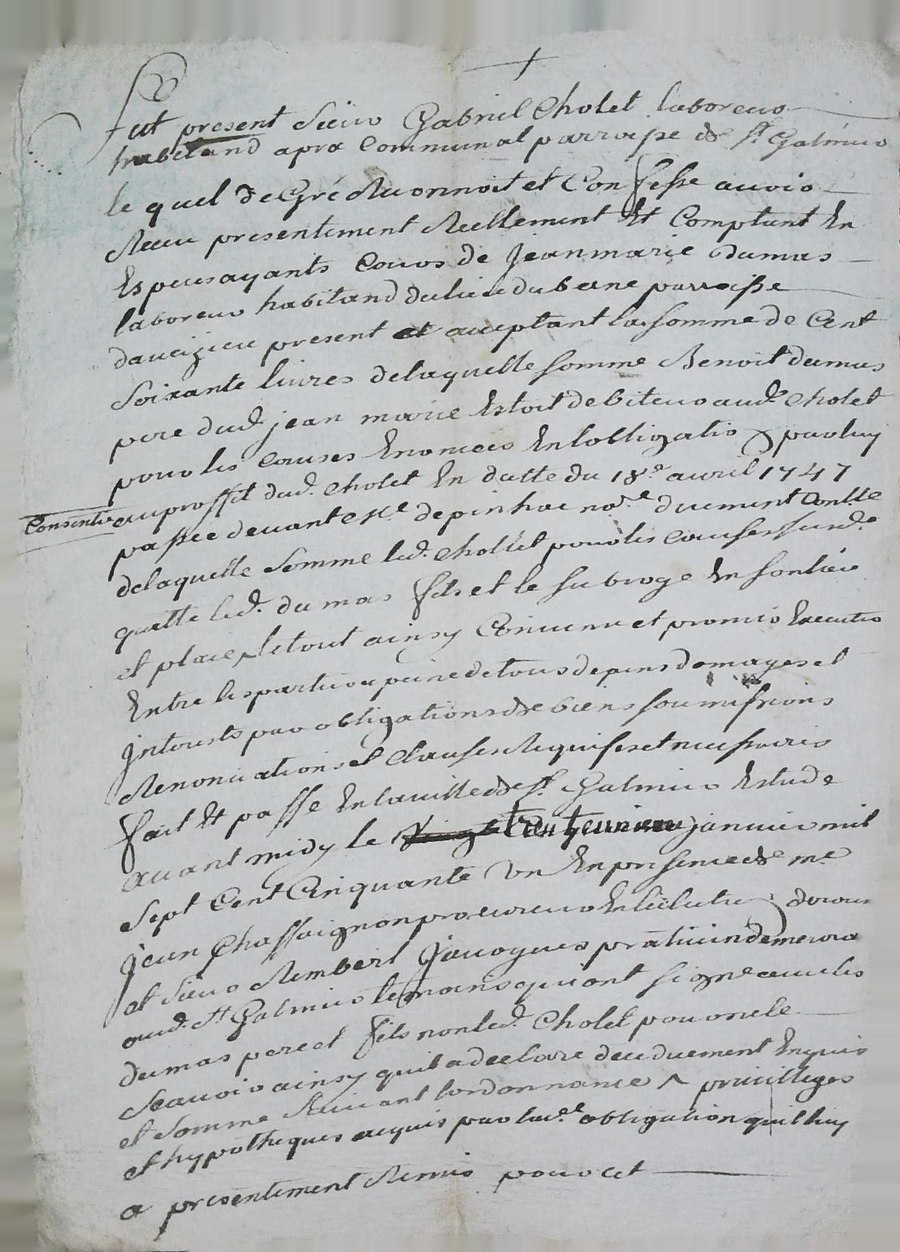 Fut present Sieur Gabriel Cholet laboreur
habitand apra Communal parroisse de St Galmier
le quel de Gré Reconnoit et Confesse avoir
Receu presentement Reellement Et Comptant En
Espesayants Cours de Jean marie dumas
laboreur habitand du lieu du berne parroisse
daveizieu present et acceptant la somme de Cent
Soixante livres de laquelle somme Benoit dumas
pere dud. jean marie Estoit debiteur aud. Cholet
pour les Causes Enoncées En lobligatio par luy
Consentie au proffit dud. Cholet En datte du 18e avril 1747
passée devant Me depinhac nore duement Conllée
de laquelle Somme led. Chollet pour les Causes susd.
quitte led. dumas fils et le subroge En son lieu
et place le tout ainsy Convenu et promis Executer
Entre les parties a peine de tous depens domages et
Interests par obligations de biens soumissions
Renonciations et Clauses Requises et necessaires
fait Et passé En la ville de St Galmier Estude
avant midy le vingt trent eunieme janvier mil
Sept Cent Cinquante Un En presence de me
Jean Chassaignon procureur En lelection
et Sieur Rembert Javogues praticien demeurant
aud. St Galmier temoins qui ont signé avec les
dumas pere et fils non led. Cholet pour ne le
Scavoir ainsy quil a declaré de ce duement Enquis
et Sommé Suivant lordonnance ^ privilleges
et hypotheques acquis par lade obligation quil luy
a presentement Remis pour cet